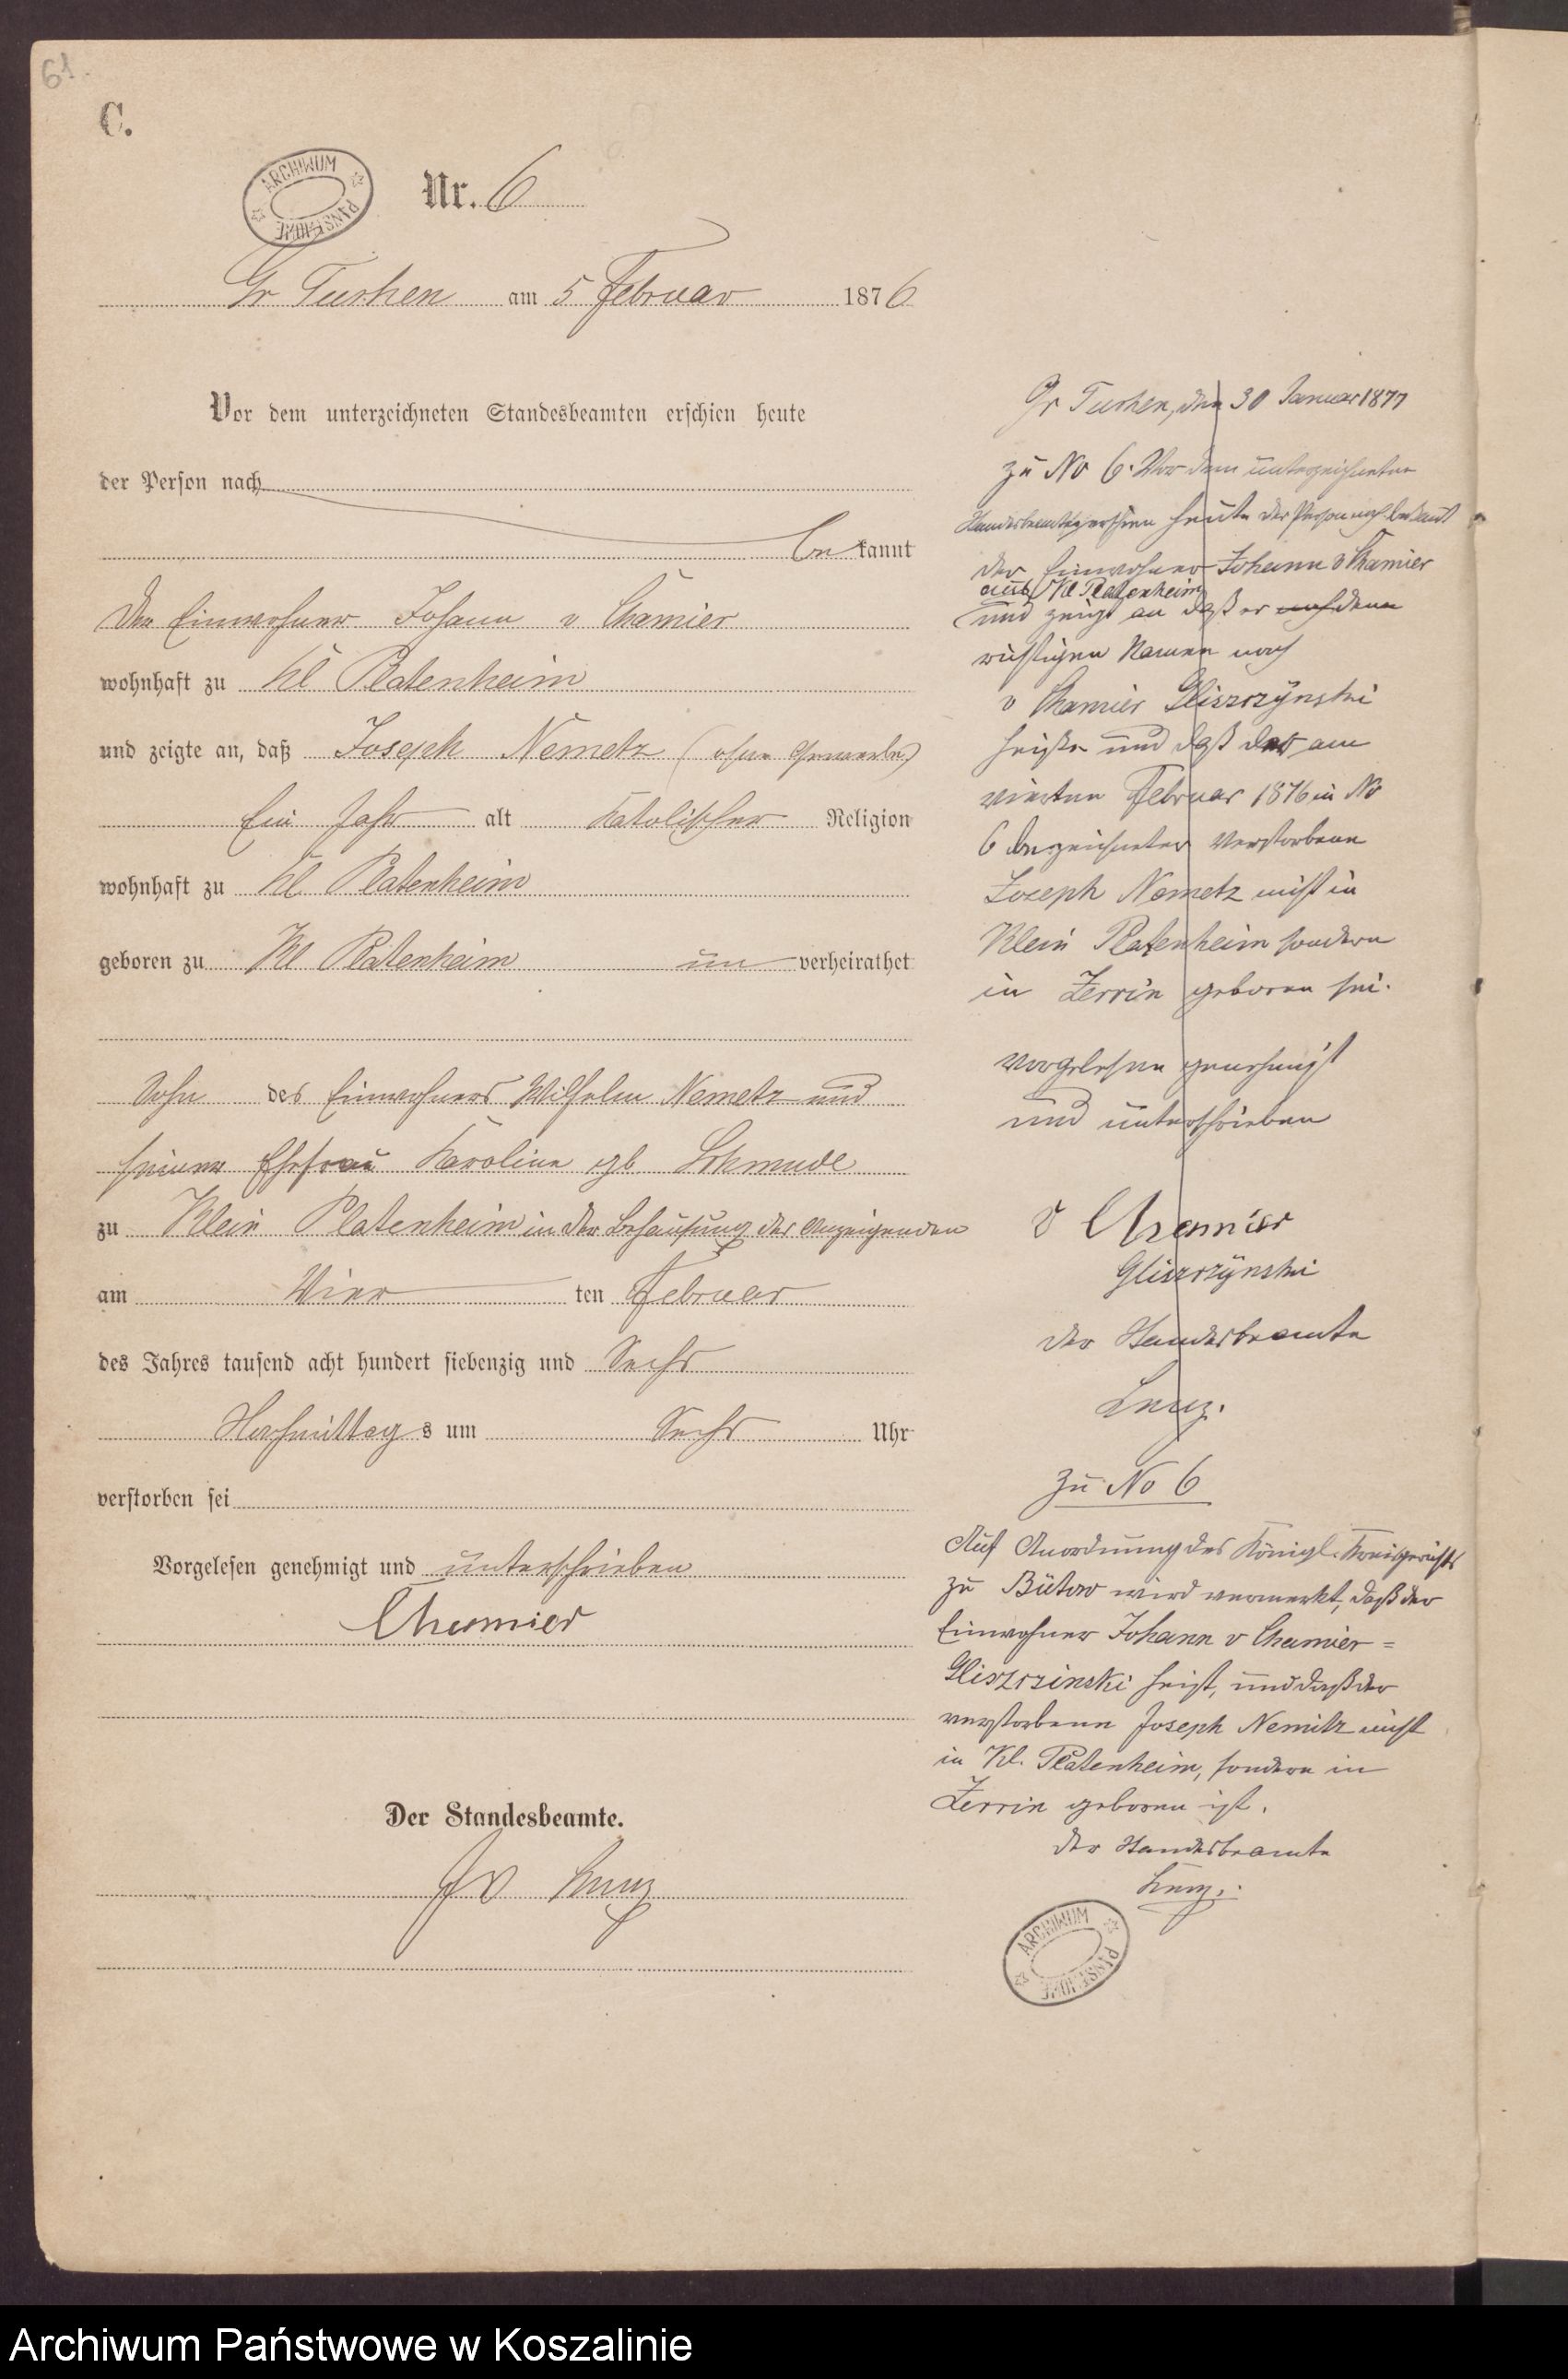 61.
C.
ARCHIWUM PAŃSTWOWE
Nr. 6
Gr Tuchen am 5 Februar 1876
Vor dem unterzeichneten Standesbeamten erschien heute
der Person nach
be kannt
der Einwohner Johann v Chamier
wohnhaft zu Kl Platenheim
und zeigte an, daß Joseph Nemetz (ohne Gewerbe)
Ein Jahr alt Katolischer Religion
wohnhaft zu Kl Platenheim
geboren zu Kl Platenheim un verheirathet
Sohn des Einwohners Wilhelm Nemetz und
seiner Ehefrau Karoline gb Schmude
zu Klein Platenheim in der Behausung des Anzeigenden
am Vier ten Februar
des Jahres tausend acht hundert siebenzig und Sechs
Nachmittag s um Sechs Uhr
verstorben sei
Vorgelesen genehmigt und unterschrieben
Chamier
Der Standesbeamte.
Gr Tuchen, den 30 Januar 1877
zu No 6. Vor dem unterzeichneten
Standesbeamten erschien heute der Person nach bekannt
der Einwohner Johann v Chamier
aus Kl Platenheim
und zeigt an daß er auf dem
richtigen Namen nach
v Chamier Gliszczÿnski
heiße und daß der am
vierten Februar 1876 in No
6 bezeichneter Verstorbene
Joseph Nemetz nicht in
Klein Platenheim sondern
in Zerrin geboren sei.
Vorgelesen genehmigt
und unterschrieben
v Chamier
Gliszczÿnski
der Standesbeamte
zu No 6
Auf Anordnung des Königl. Kreisgerichts
zu Bütow wird vermerkt, daß der
Einwohner Johann v Chamier =
Gliszczinski heist, und daß der
verstorbene Joseph Nemitz nicht
in Kl. Platenheim, sondern in
Zerrin geboren ist.
der Standesbeamte
ARCHIWUM PAŃSTWOWE
Archiwum Państwowe w Koszalinie